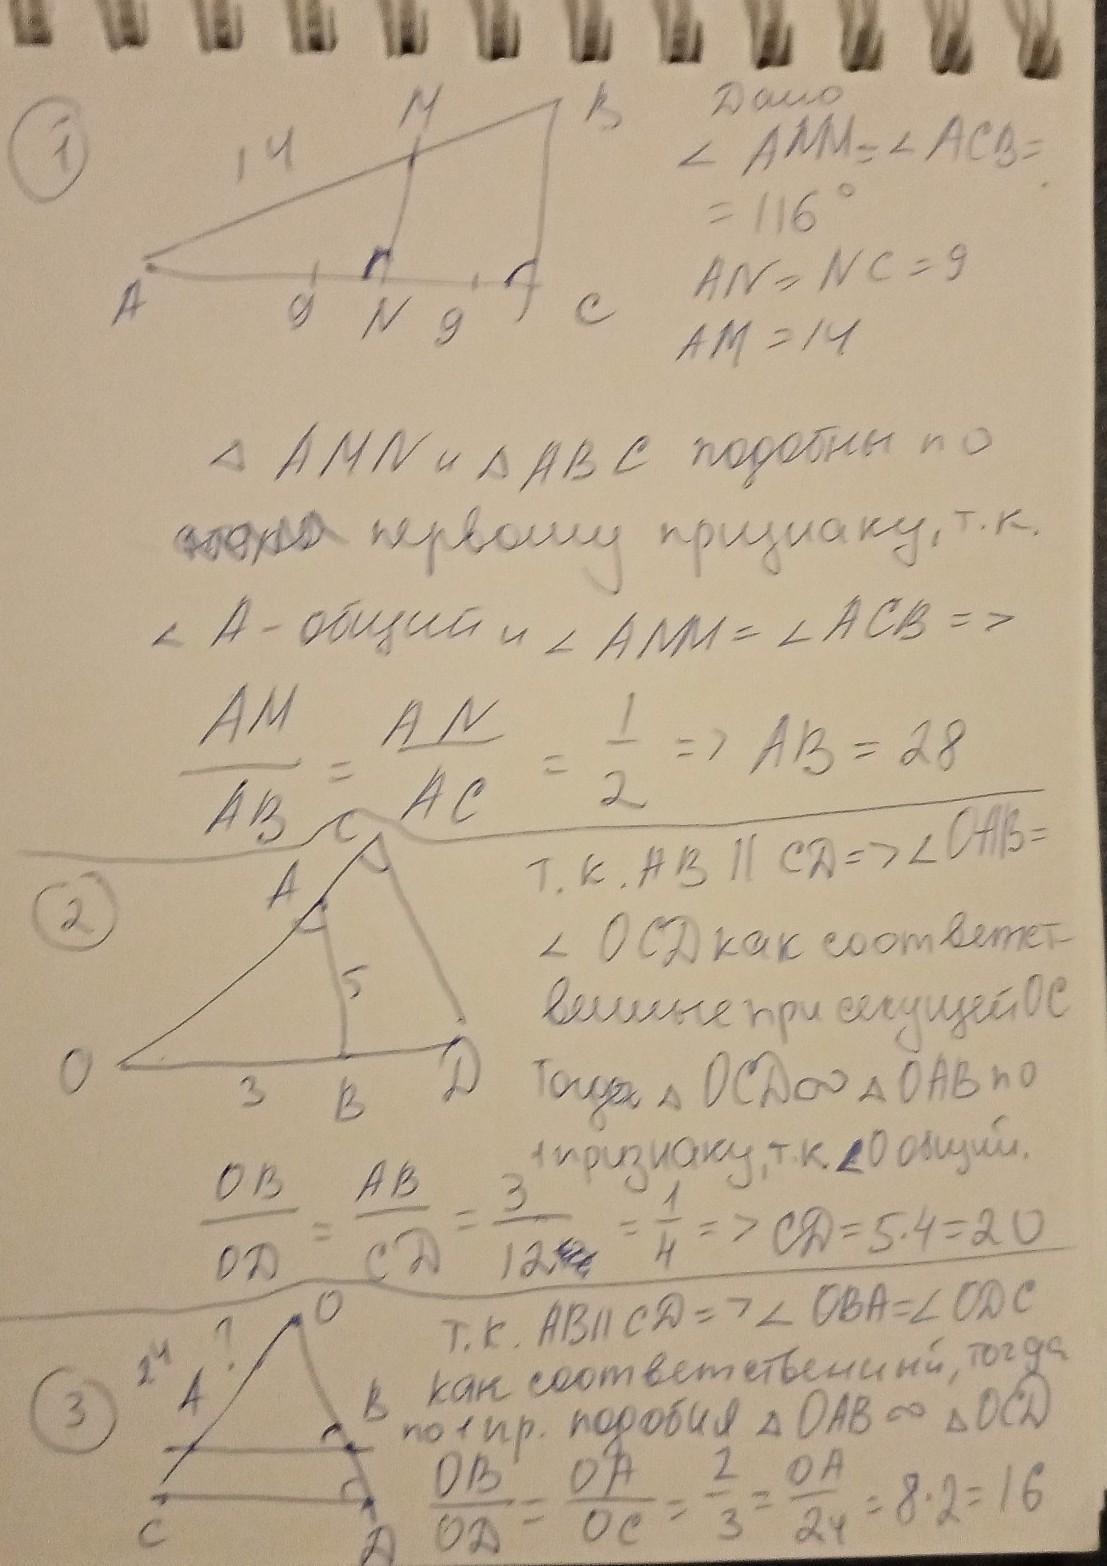 1
M
B
14
A
9
N
9
C
Дано
∠ ANM = ∠ ACB =
= 116°
AN = NC = 9
AM = 14
△ AMN и △ ABC подобны по
первому признаку, т.к.
∠ A - общий и ∠ ANM = ∠ ACB =>
AM/AB = AN/AC = 1/2 => AB = 28
2
C
A
5
O
3
B
D
т.к. AB || CD => ∠ OAB =
∠ OCD как соответст-
венные при секущей OC
Тогда △ OCD ∞ △ OAB по
1 признаку, т.к. ∠O общий.
OB/OD = AB/CD = 3/12 = 1/4 => CD = 5·4 = 20
3
O
?
24
A
B
C
D
т.к. AB || CD => ∠ OBA = ∠ ODC
как соответственный, тогда
по 1 пр. подобия △ OAB ∞ △ OCD
OB/OD = OA/OC = 2/3 = OA/24 = 8·2 = 16